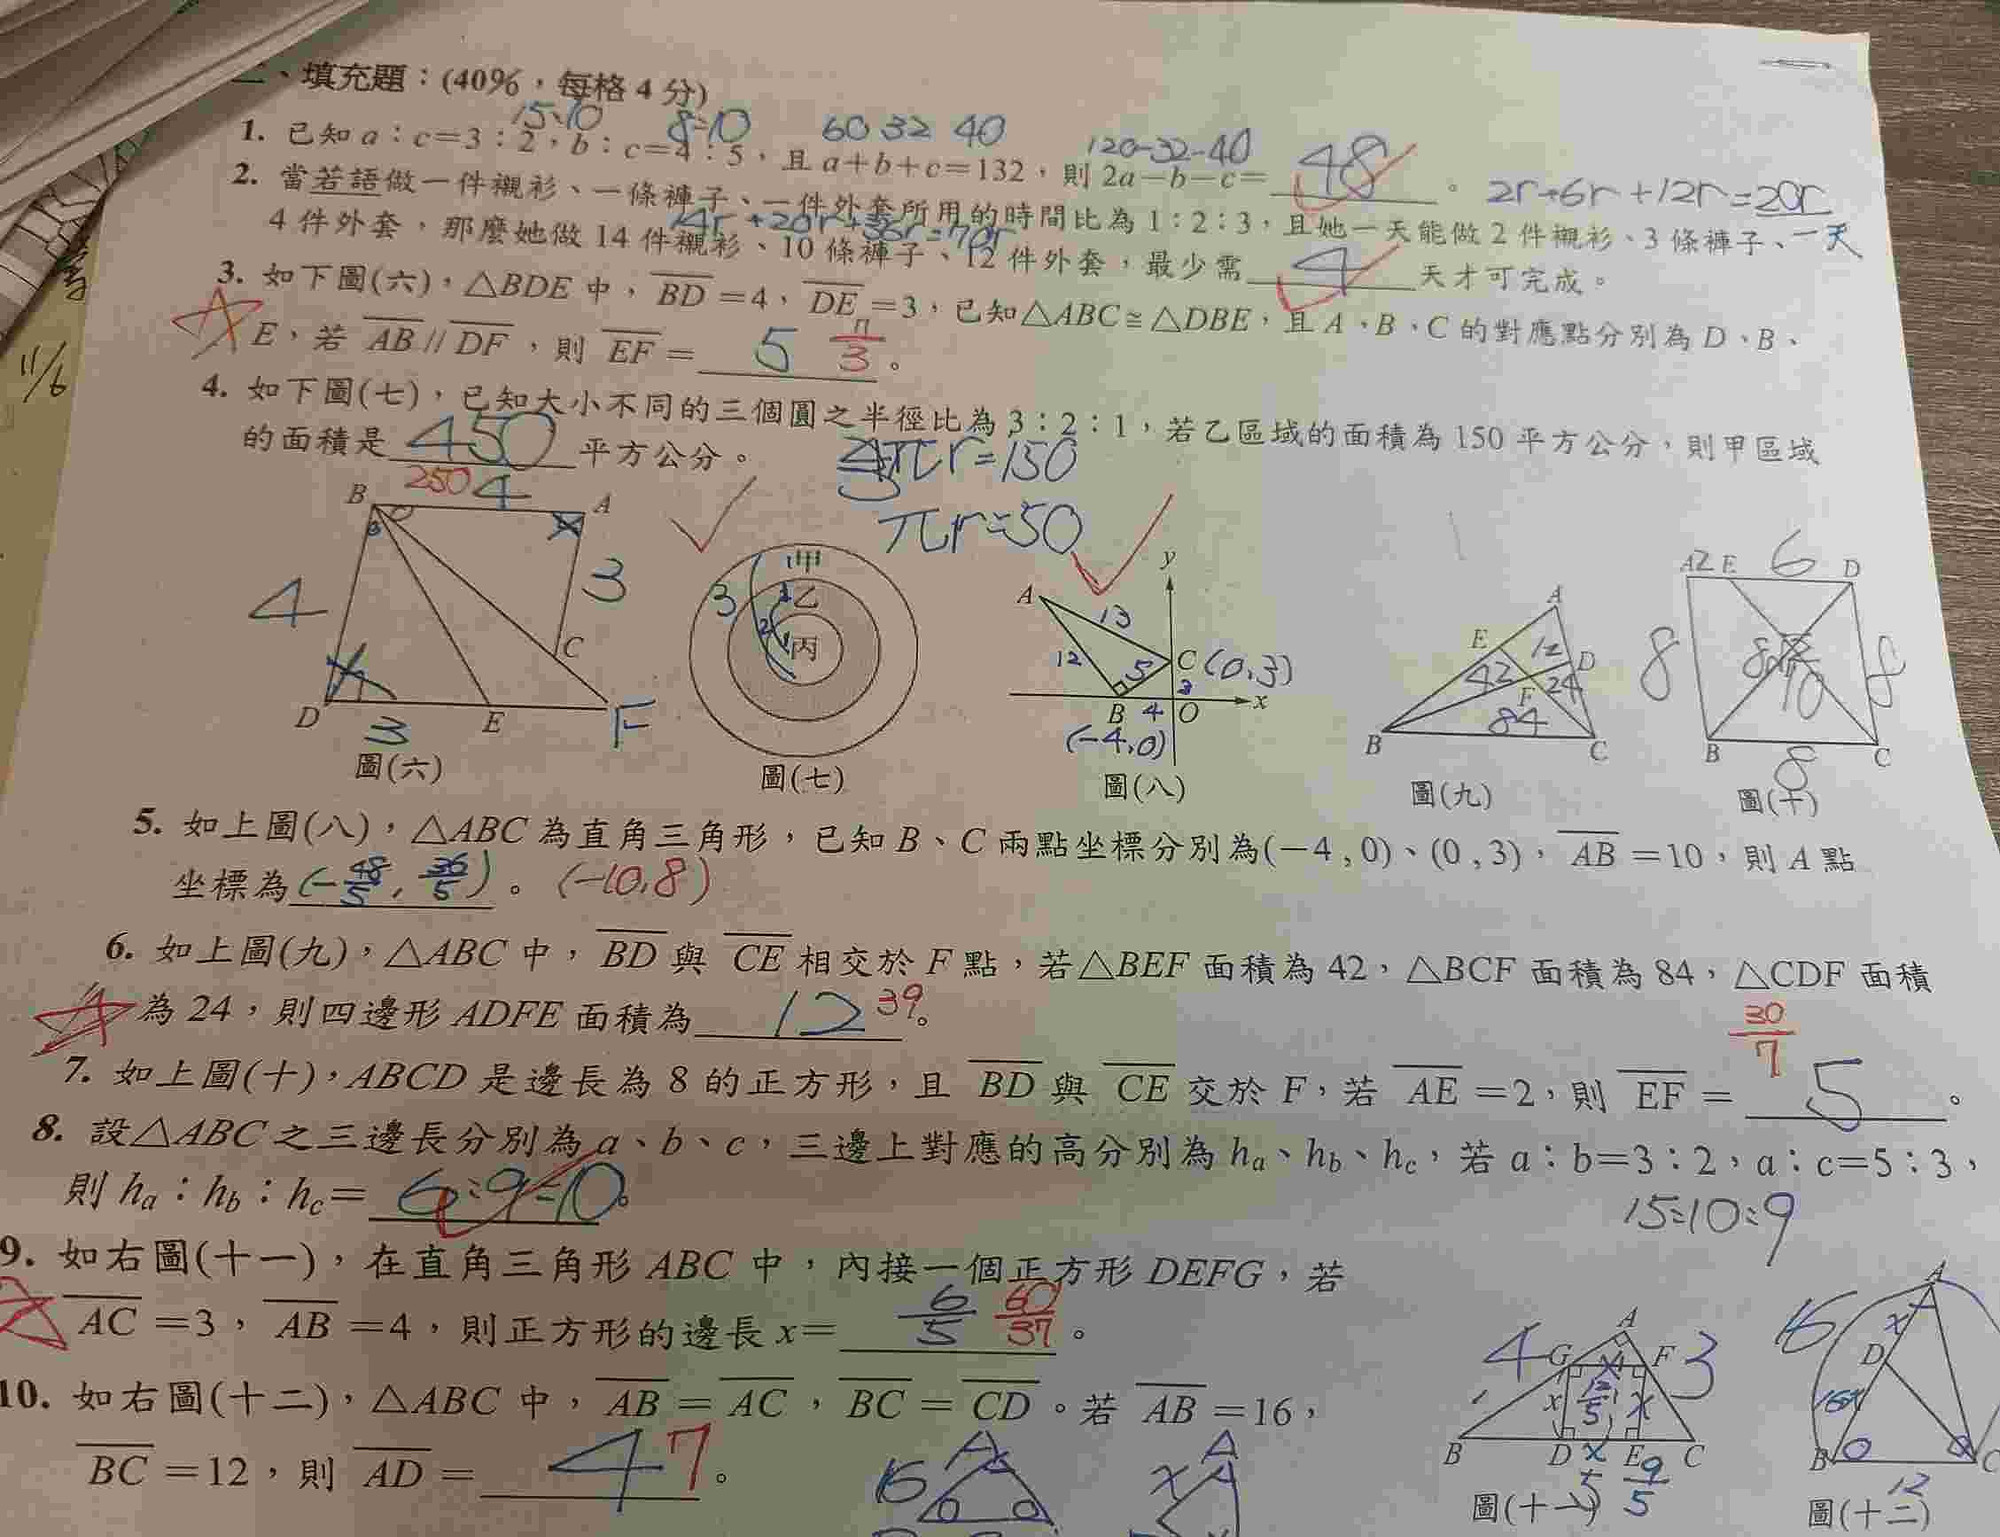 二、填充題：(40%，每格 4 分)
15:10 8:10 60 32 40 120-32-40
1. 已知 a：c=3：2，b：c=4：5，且 a+b+c=132，則 2a－b－c= 48 。
2r+6r+12r=20r
2. 當若語做一件襯衫、一條褲子、一件外套所用的時間比為 1：2：3，且她一天能做 2 件襯衫、3 條褲子、一天
14r+20r+36r=70r
4 件外套，那麼她做 14 件襯衫、10 條褲子、12 件外套，最少需 4 天才可完成。
3. 如下圖(六)，△BDE 中，BD=4，DE=3，已知△ABC≅△DBE，且 A、B、C 的對應點分別為 D、B、
11/6
E，若 AB//DF，則 EF= 5 11/3 。
4. 如下圖(七)，已知大小不同的三個圓之半徑比為 3：2：1，若乙區域的面積為 150 平方公分，則甲區域
的面積是 450 平方公分。
250
πr=150
πr=50
B 4 A
4 3
C
D 3 E F
圖(六)
甲
3 乙
2 1 丙
圖(七)
y
A 13
12 5 C (0,3)
3
B 4 O x
(-4,0)
圖(八)
A
E 12 D
42 F 24
B 84 C
圖(九)
A 2 E 6 D
8 8
10
B 8 C
圖(十)
5. 如上圖(八)，△ABC 為直角三角形，已知 B、C 兩點坐標分別為(－4 , 0)、(0 , 3)，AB=10，則 A 點
坐標為(-48/5, 36/5)。(-10,8)
6. 如上圖(九)，△ABC 中，BD 與 CE 相交於 F 點，若△BEF 面積為 42，△BCF 面積為 84，△CDF 面積
為 24，則四邊形 ADFE 面積為 12 39。
30/7
7. 如上圖(十)，ABCD 是邊長為 8 的正方形，且 BD 與 CE 交於 F，若 AE=2，則 EF= 5 。
8. 設△ABC 之三邊長分別為 a、b、c，三邊上對應的高分別為 ha、hb、hc，若 a：b=3：2，a：c=5：3，
則 ha：hb：hc= 6:9:10。
15:10:9
9. 如右圖(十一)，在直角三角形 ABC 中，內接一個正方形 DEFG，若
AC=3，AB=4，則正方形的邊長 x= 6/5 60/37 。
10. 如右圖(十二)，△ABC 中，AB=AC，BC=CD。若 AB=16，
BC=12，則 AD= 4 7 。
A
4 G F 3
x 12/5 x
B D x E C
5 9/5
圖(十一)
A
16 x
D
16-x
B 12 C
圖(十二)
A
16
A
x